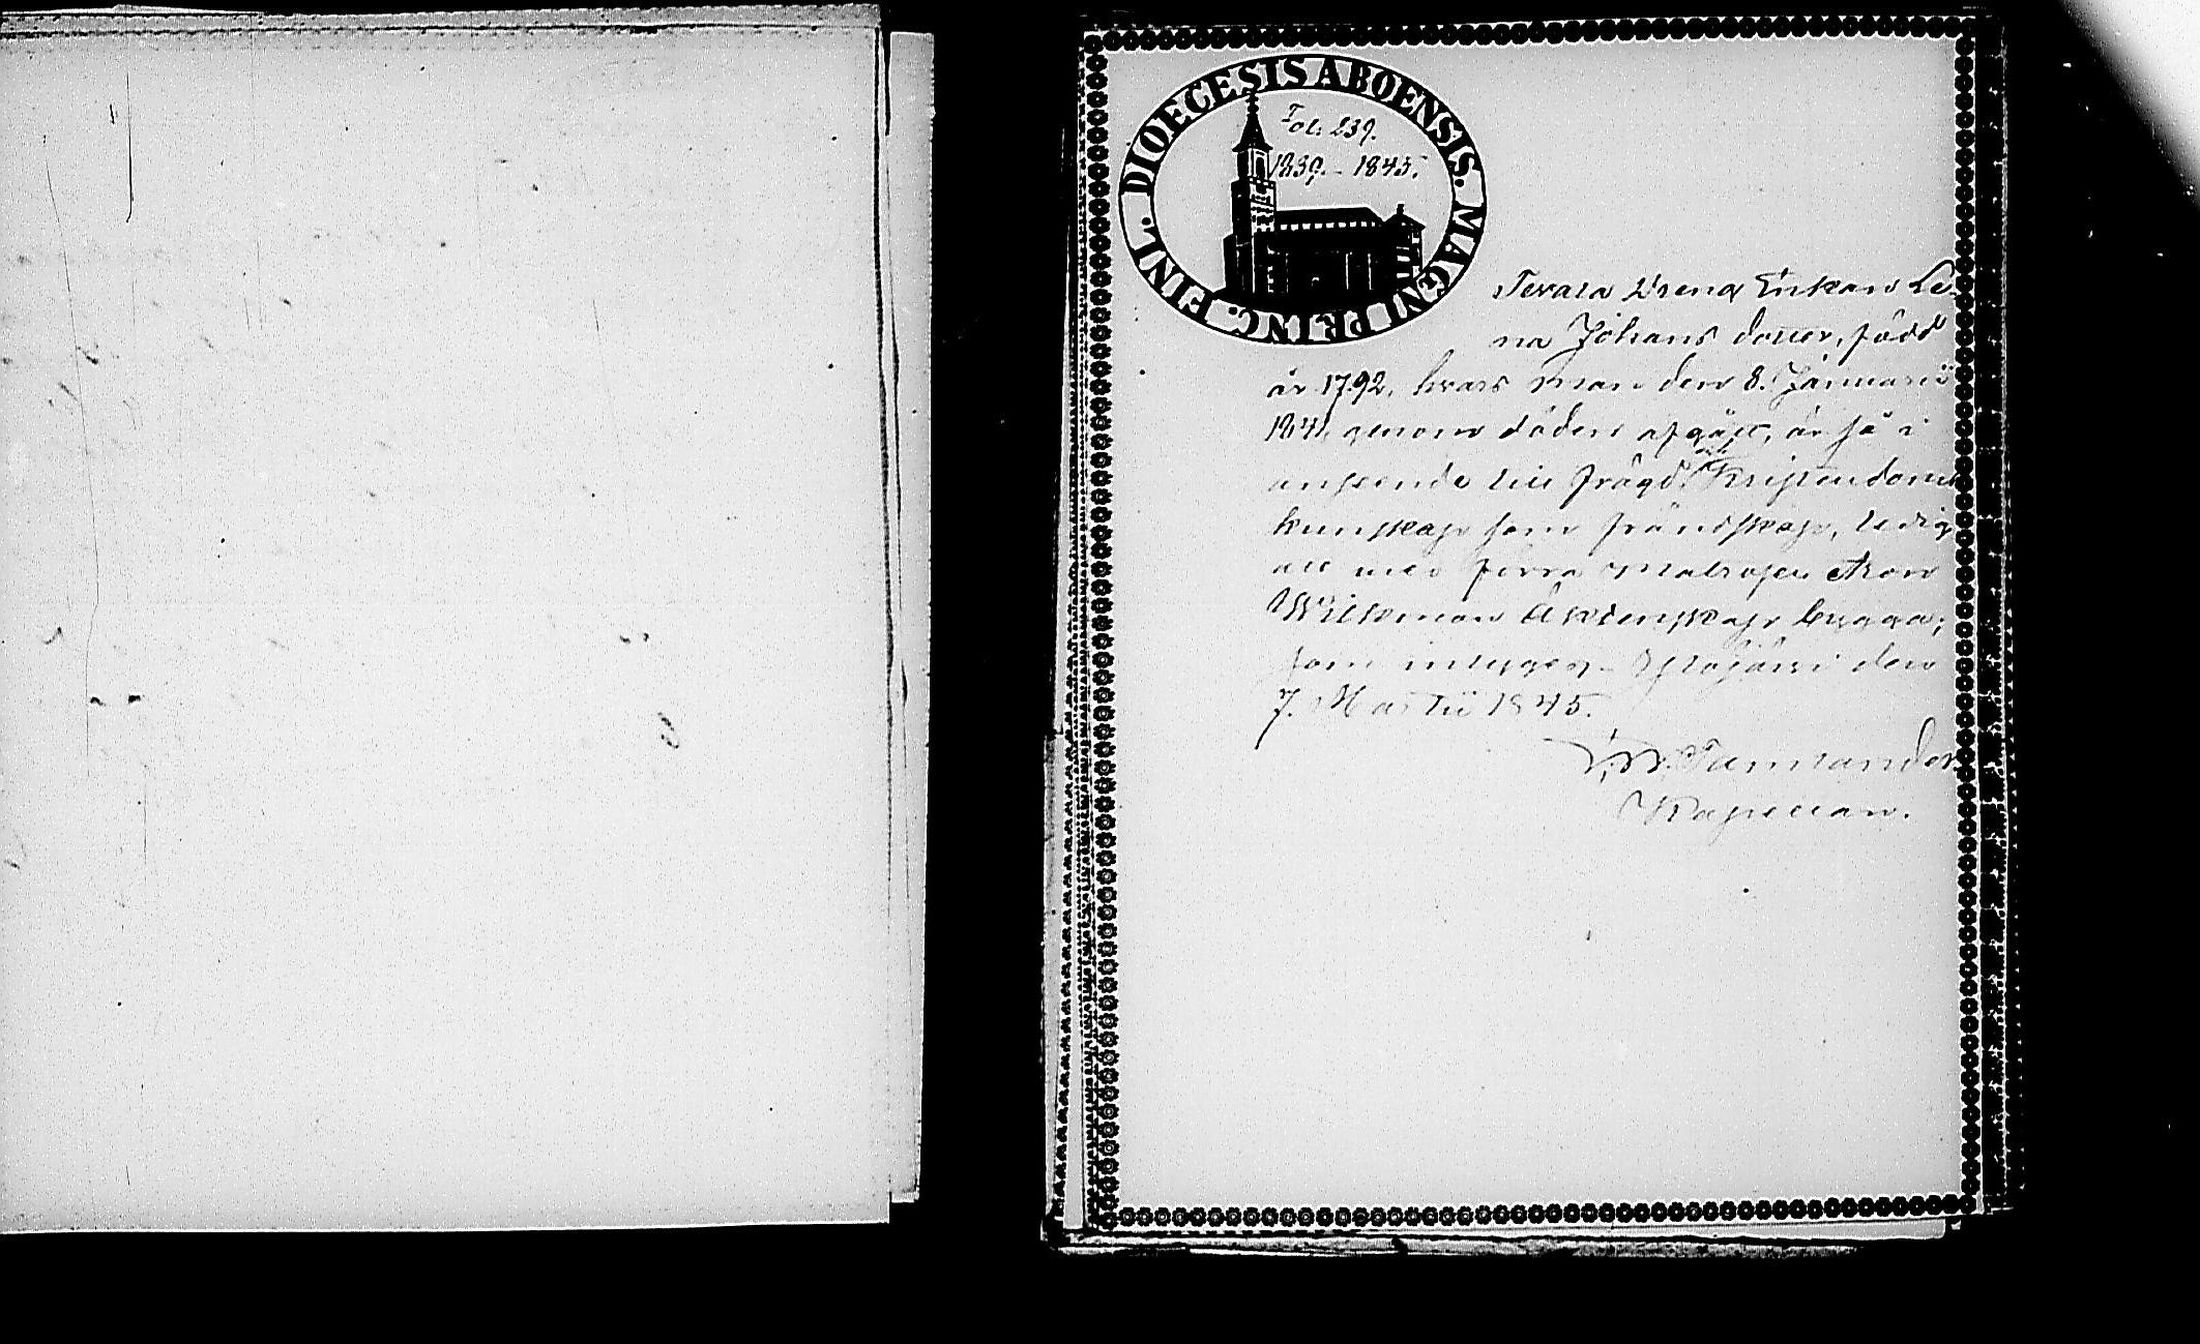 DIOECESIS ABOENSIS. MAGNI PRINC. FINL.
Fol. 239.
1839.-1845.
Dreng Enkan Le-
na Johans dotter, född
år 1792, hvars man den 8. Januarii
184 genom döden afgått, är så i
anseende till frägd, Kristendoms
kunskap som frändskap, ledig
att med förra Matrosen
Wilkman Äktenskap bygga;
som intygar den
7. Martii 1845.
Tammander
Kapellan.